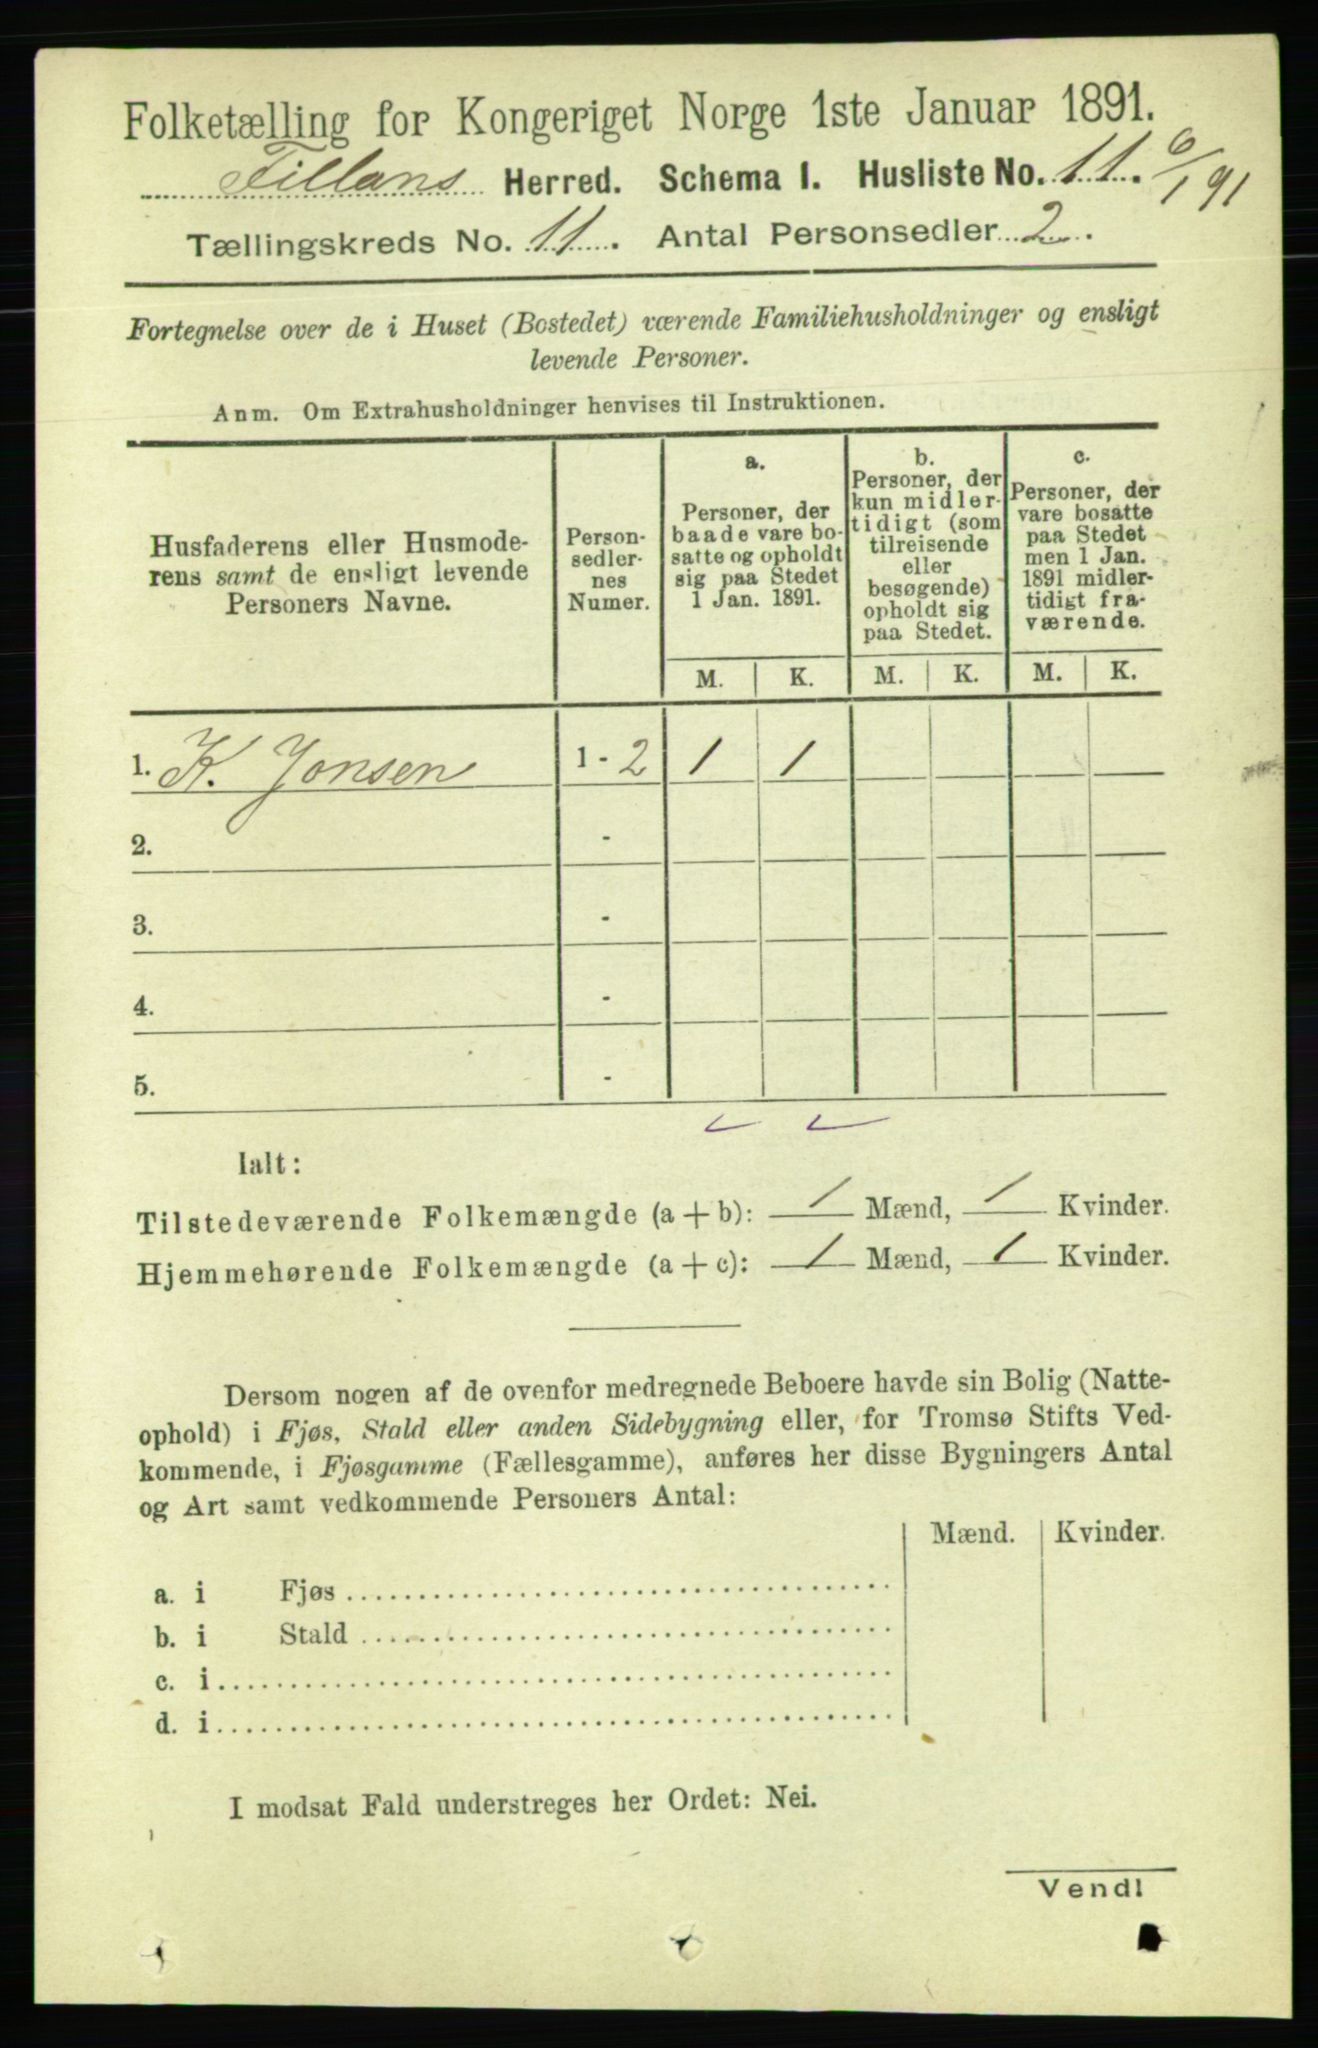 Folketælling for Kongeriget Norge 1ste Januar 1891.
Fillans Herred. Schema I. Husliste No. 11. 6/1 91
Tællingskreds No. 11. Antal Personsedler 2.
Fortegnelse over de i Huset (Bostedet) værende Familiehusholdninger og ensligt
levende Personer.
Anm. Om Extrahusholdninger henvises til Instruktionen.
Husfaderens eller Husmode-
rens samt de ensligt levende
Personers Navne.
Person-
sedler-
nes
Numer.
a.
Personer, der
baade vare bo-
satte og opholdt
sig paa Stedet
1 Jan. 1891.
b.
Personer, der
kun midler-
tidigt (som
tilreisende
eller
besøgende)
opholdt sig
paa Stedet.
c.
Personer, der
vare bosatte
paa Stedet
men 1 Jan.
1891 midler-
tidigt fra-
værende.
M. K. M. K. M. K.
1. K. Jonsen 1 - 2 1 1
2. -
3. -
4. -
5. -
Ialt:
Tilstedeværende Folkemængde (a + b): 1 Mænd, 1 Kvinder.
Hjemmehørende Folkemængde (a + c): 1 Mænd, 1 Kvinder.
Dersom nogen af de ovenfor medregnede Beboere havde sin Bolig (Natte-
ophold) i Fjøs, Stald eller anden Sidebygning eller, for Tromsø Stifts Ved-
kommende, i Fjøsgamme (Fællesgamme), anføres her disse Bygningers Antal
og Art samt vedkommende Personers Antal:
Mænd. Kvinder.
a. i Fjøs
b. i Stald
c. i
d. i
I modsat Fald understreges her Ordet: Nei.
Vend!